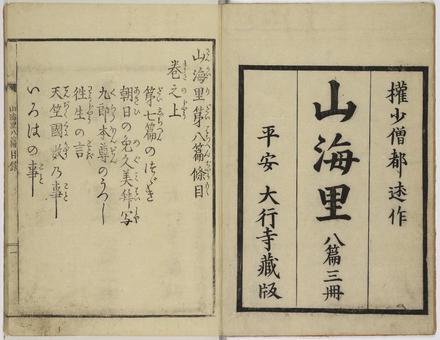 權少僧都述作
山海里 八篇三冊
平安 大行寺藏版
山海里第八篇條目
巻之上
第七篇のつゞき
九郎本尊のうつし
徃生の言
天竺國数乃事
いろはの事
山海里八篇目録